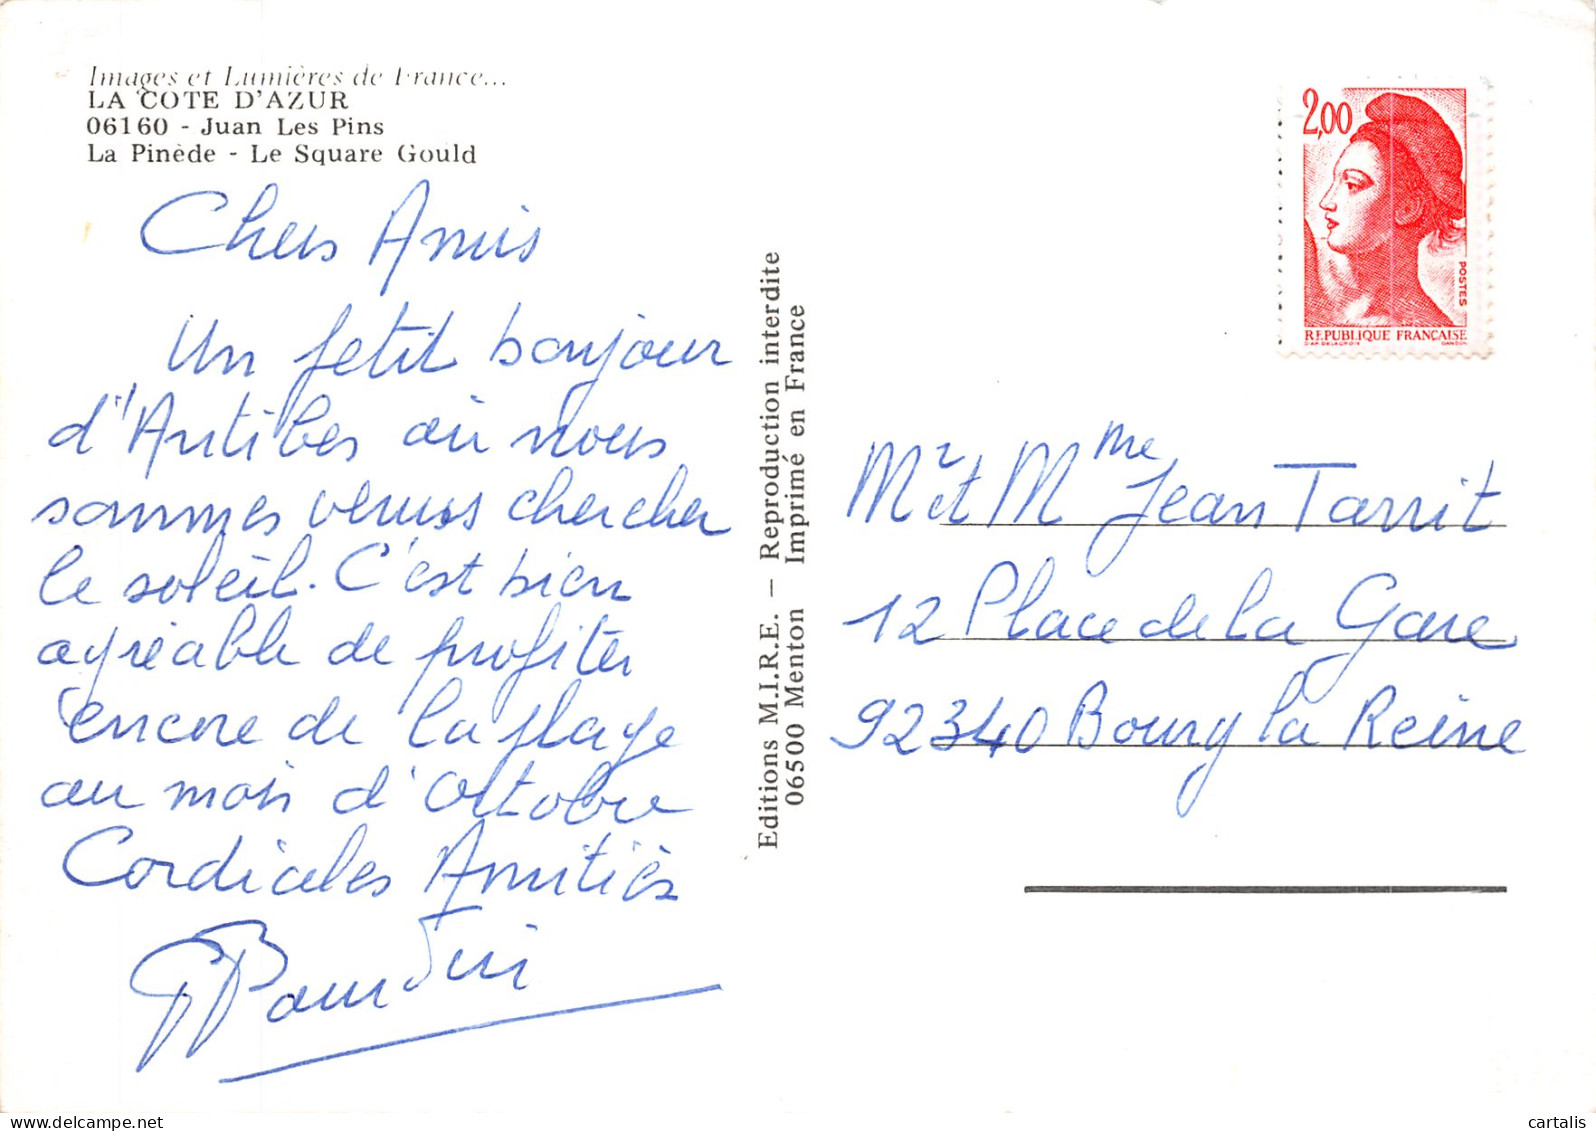 Images et Lumières de France...
LA COTE D'AZUR
06160 - Juan Les Pins
La Pinède - Le Square Gould
Chers Amis
Un petit bonjour
d'Antibes où nous
sommes venus chercher
le soleil. C'est bien
agréable de profiter
encore de la plage
au mois d'octobre
Cordiales Amitiés
Editions M.I.R.E. — Reproduction interdite
06500 Menton Imprimé en France
2,00
POSTES
REPUBLIQUE FRANÇAISE
D'AP. DELACROIX GANDON
Mr et Mme Jean Tarrit
12 Place de la Gare
92340 Bourg la Reine
cartalis